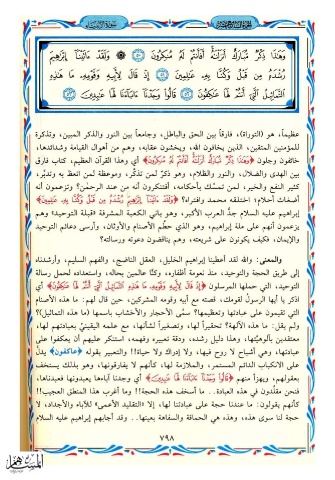 سورة الأنبياء
وَهَٰذَا ذِكْرٌ مُّبَارَكٌ أَنزَلْنَاهُ أَفَأَنتُمْ لَهُ مُنكِرُونَ ۞ وَلَقَدْ ءَاتَيْنَا إِبْرَٰهِيمَ
رُشْدَهُ مِن قَبْلُ وَكُنَّا بِهِ عَٰلِمِينَ إِذْ قَالَ لِأَبِيهِ وَقَوْمِهِ مَا هَٰذِهِ
التَّمَاثِيلُ الَّتِي أَنتُمْ لَهَا عَٰكِفُونَ قَالُوا وَجَدْنَا ءَابَاءَنَا لَهَا عَٰبِدِينَ
عظيماً، هو (التوراة)، فارقاً بين الحق والباطل، وجامعاً بين النور والذكر المبين، وتذكرة
للمؤمنين المتقين، الذين يخافون الله، ويخشون عقابه، وهم من أهوال القيامة وشدائدها،
خائفون وجلون ﴿وَهَٰذَا ذِكْرٌ مُّبَارَكٌ أَنزَلْنَاهُ أَفَأَنتُمْ لَهُ مُنكِرُونَ﴾ أي وهذا القرآن العظيم، كتاب فارق
بين الهدى والضلال، والنور والظلام، وهو ذكرٌ لمن تذكَّر، وموعظة لمن اتعظ به وتدبَّر،
كثير النفع والخير، لمن تمسَّك بأحكامه، أفتنكرون أنه من عند الرحمن؟ وتزعمون أنه
أضغاث أحلام، اختلقه محمد وافتراه؟ ﴿وَلَقَدْ ءَاتَيْنَا إِبْرَٰهِيمَ رُشْدَهُ مِن قَبْلُ وَكُنَّا بِهِ عَٰلِمِينَ﴾
إبراهيم عليه السلام جدُّ العرب الأكبر، وهو باني الكعبة المشرفة «قبلة التوحيد» وهم
يزعمون أنهم على ملة إبراهيم، وهو الذي حطَّم الأصنام والأوثان، وأرسى دعائم التوحيد
والإيمان، فكيف يكونون على شريعته، وهم يناقضون دعوته ورسالته؟
والمعنى: والله لقد أعطينا إبراهيم الخليل، العقل الناضج، والفهم السليم، وأرشدناه
إلى طريق الحجة والتوحيد، منذ نعومة أظفاره، وكنَّا عالمين بحاله، واستعداده لحمل رسالة
التوحيد، التي حملها المرسلون ﴿إِذْ قَالَ لِأَبِيهِ وَقَوْمِهِ مَا هَٰذِهِ التَّمَاثِيلُ الَّتِي أَنتُمْ لَهَا عَٰكِفُونَ﴾ أي
اذكر يا أيها الرسول لقومك، قصته مع أبيه وقومه المشركين، حين قال لهم: ما هذه الأصنام
التي تقيمون على عبادتها وتعظيمها؟ سمَّى الأحجار والأخشاب باسمها (ما هذه التماثيل؟)
ولم يقل: ما هذه الآلهة؟ تحقيراً لها، وتصغيراً لشأنها، مع علمه اليقينيِّ بعبادتهم لها،
معتقدين بألوهيتها، وهذا دليل رشده، ودقة تعبيره وفهمه، استنكر عليهم أن يعكفوا على
عبادتها، وهي أشباح لا روح فيها، ولا إدراك ولا حياة!! والتعبير بقوله ﴿عاكفون﴾ يدلُّ
على الانكباب الدائم المستمر، والملازمة لها، كأنهم لا يفارقونها، وهو بذلك يستخف
بعقولهم، ويهزأ منهم ﴿قَالُوا وَجَدْنَا ءَابَاءَنَا لَهَا عَٰبِدِينَ﴾ أي وجدنا آباءنا يعبدونها فعبدناها،
فنحن مقلِّدون في هذه العبادة.. ما أسخف هذه الحجة!! وما أغرب هذا المنطق العجيب!!
كأنهم يقولون: ما عندنا حجة على عبادتنا لها، إلا «التقليد الأعمى» للآباء والأجداد، لا
حجة لنا سوى هذه، وهذه هي الحماقة والسفاهة بعينها.. وقد أجابهم إبراهيم عليه السلام
٧٩٨